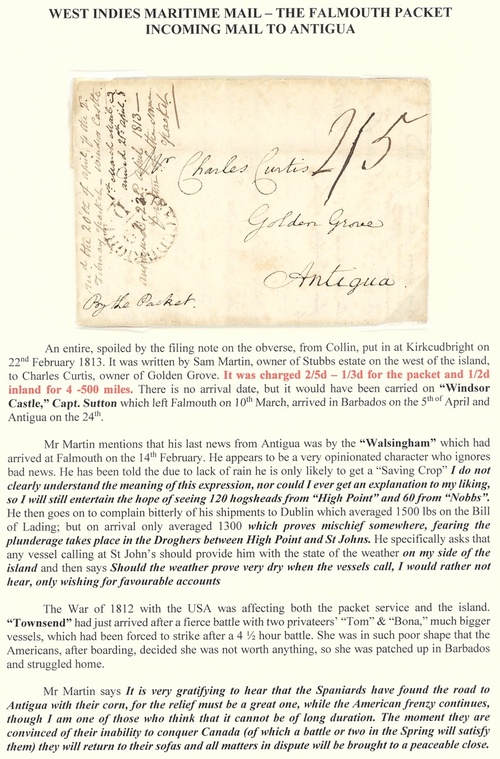 WEST INDIES MARITIME MAIL – THE FALMOUTH PACKET
INCOMING MAIL TO ANTIGUA
2/5
Mr Charles Curtis
Golden Grove
Antigua.
By the Packet.
An entire, spoiled by the filing note on the obverse, from Collin, put in at Kirkcudbright on
22nd February 1813. It was written by Sam Martin, owner of Stubbs estate on the west of the island,
to Charles Curtis, owner of Golden Grove. It was charged 2/5d – 1/3d for the packet and 1/2d
inland for 4 -500 miles. There is no arrival date, but it would have been carried on “Windsor
Castle,” Capt. Sutton which left Falmouth on 10th March, arrived in Barbados on the 5th of April and
Antigua on the 24th.
Mr Martin mentions that his last news from Antigua was by the “Walsingham” which had
arrived at Falmouth on the 14th February. He appears to be a very opinionated character who ignores
bad news. He has been told the due to lack of rain he is only likely to get a “Saving Crop” I do not
clearly understand the meaning of this expression, nor could I ever get an explanation to my liking,
so I will still entertain the hope of seeing 120 hogsheads from “High Point” and 60 from “Nobbs”.
He then goes on to complain bitterly of his shipments to Dublin which averaged 1500 lbs on the Bill
of Lading; but on arrival only averaged 1300 which proves mischief somewhere, fearing the
plunderage takes place in the Droghers between High Point and St Johns. He specifically asks that
any vessel calling at St John’s should provide him with the state of the weather on my side of the
island and then says Should the weather prove very dry when the vessels call, I would rather not
hear, only wishing for favourable accounts
The War of 1812 with the USA was affecting both the packet service and the island.
“Townsend” had just arrived after a fierce battle with two privateers’ “Tom” & “Bona,” much bigger
vessels, which had been forced to strike after a 4 ½ hour battle. She was in such poor shape that the
Americans, after boarding, decided she was not worth anything, so she was patched up in Barbados
and struggled home.
Mr Martin says It is very gratifying to hear that the Spaniards have found the road to
Antigua with their corn, for the relief must be a great one, while the American frenzy continues,
though I am one of those who think that it cannot be of long duration. The moment they are
convinced of their inability to conquer Canada (of which a battle or two in the Spring will satisfy
them) they will return to their sofas and all matters in dispute will be brought to a peaceable close.